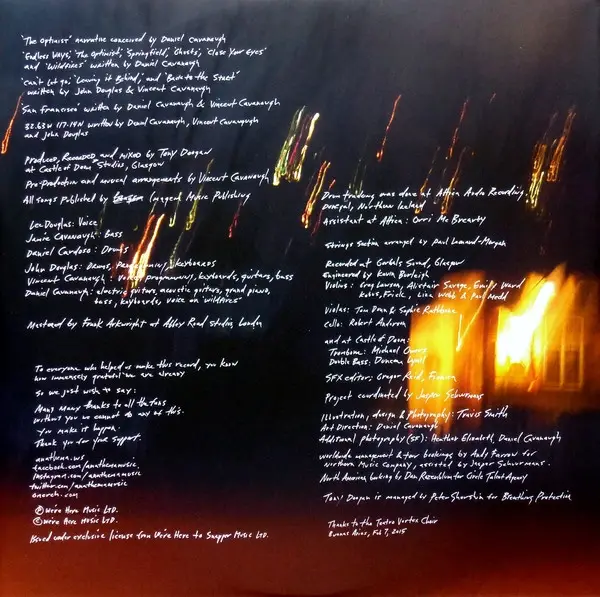 'The Optimist' narrative conceived by Daniel Cavanagh
'Endless Ways', 'The Optimist', 'Springfield', 'Ghosts', 'Close Your Eyes'
and 'Wildfires' written by Daniel Cavanagh
'Can't Let go', 'Leaving it Behind', and 'Back to the Start'
written by John Douglas & Vincent Cavanagh
'San Francisco' written by Daniel Cavanagh & Vincent Cavanagh
32.63N 117.14W written by Daniel Cavanagh, Vincent Cavanagh
and John Douglas
Produced, Recorded and mixed by Tony Doogan
at Castle of Doom Studios, Glasgow
Pre-Production and musical arrangements by Vincent Cavanagh
All songs Published by Imagem Music Publishing
Lee Douglas: Voice
Jamie Cavanagh: Bass
Daniel Cardoso: Drums
John Douglas: Drums, Programming, keyboards
Vincent Cavanagh: Voice, Programming, keyboards, guitars, bass
Daniel Cavanagh: electric guitars, acoustic guitars, grand piano,
bass, keyboards, voice on 'wildfires'
Mastered by Frank Arkwright at Abbey Road Studios, London
To everyone who helped us make this record, you know
how immensely grateful we are already
So we just wish to say:
Many Many thanks to all the fans
without you we cannot do any of this.
You make it happen.
Thank you for your support.
anathema.ws
facebook.com/anathemamusic
Instagram.com/anathemamusic
twitter.com/anathemamusic
omerch.com
℗ We're Here Music LTD.
© We're Here Music LTD.
Issued under exclusive license from We're Here to Snapper Music LTD.
Drum tracking was done at Attica Audio Recording,
Donegal, Northern Ireland
Assistant at Attica: Orri Mc Brearty
Strings section arranged by Paul Leonard-Morgan
Recorded at Gorbals Sound, Glasgow
Engineered by Kevin Burleigh
Violins: Greg Lawson, Alistair Savage, Emily Ward
Liza Webb & Paul Medd
Violas: Tom Dunn & Sophie Rathbone
Cello: Robert Anderson
and at Castle of Doom:
Trombone: Michael Owers
Double Bass: Duncan Lyall
SFX editor: Gregor Reid,
Project coordinated by Jasper Schuurmans
Illustration, design & Photography: Travis Smith
Art Direction: Daniel Cavanagh
Additional photography (SF): Heather Elizabeth, Daniel Cavanagh
Worldwide management & tour bookings by Andy Farrow for
Northern Music Company, assisted by Jasper Schuurmans.
North American booking by Dan Rozenblum for Circle Talent Agency
Tony Doogan is managed by Peter Shershin for Breathing Protection
Thanks to the Teatro Vortex Choir
Buenos Aires, Feb 7, 2015